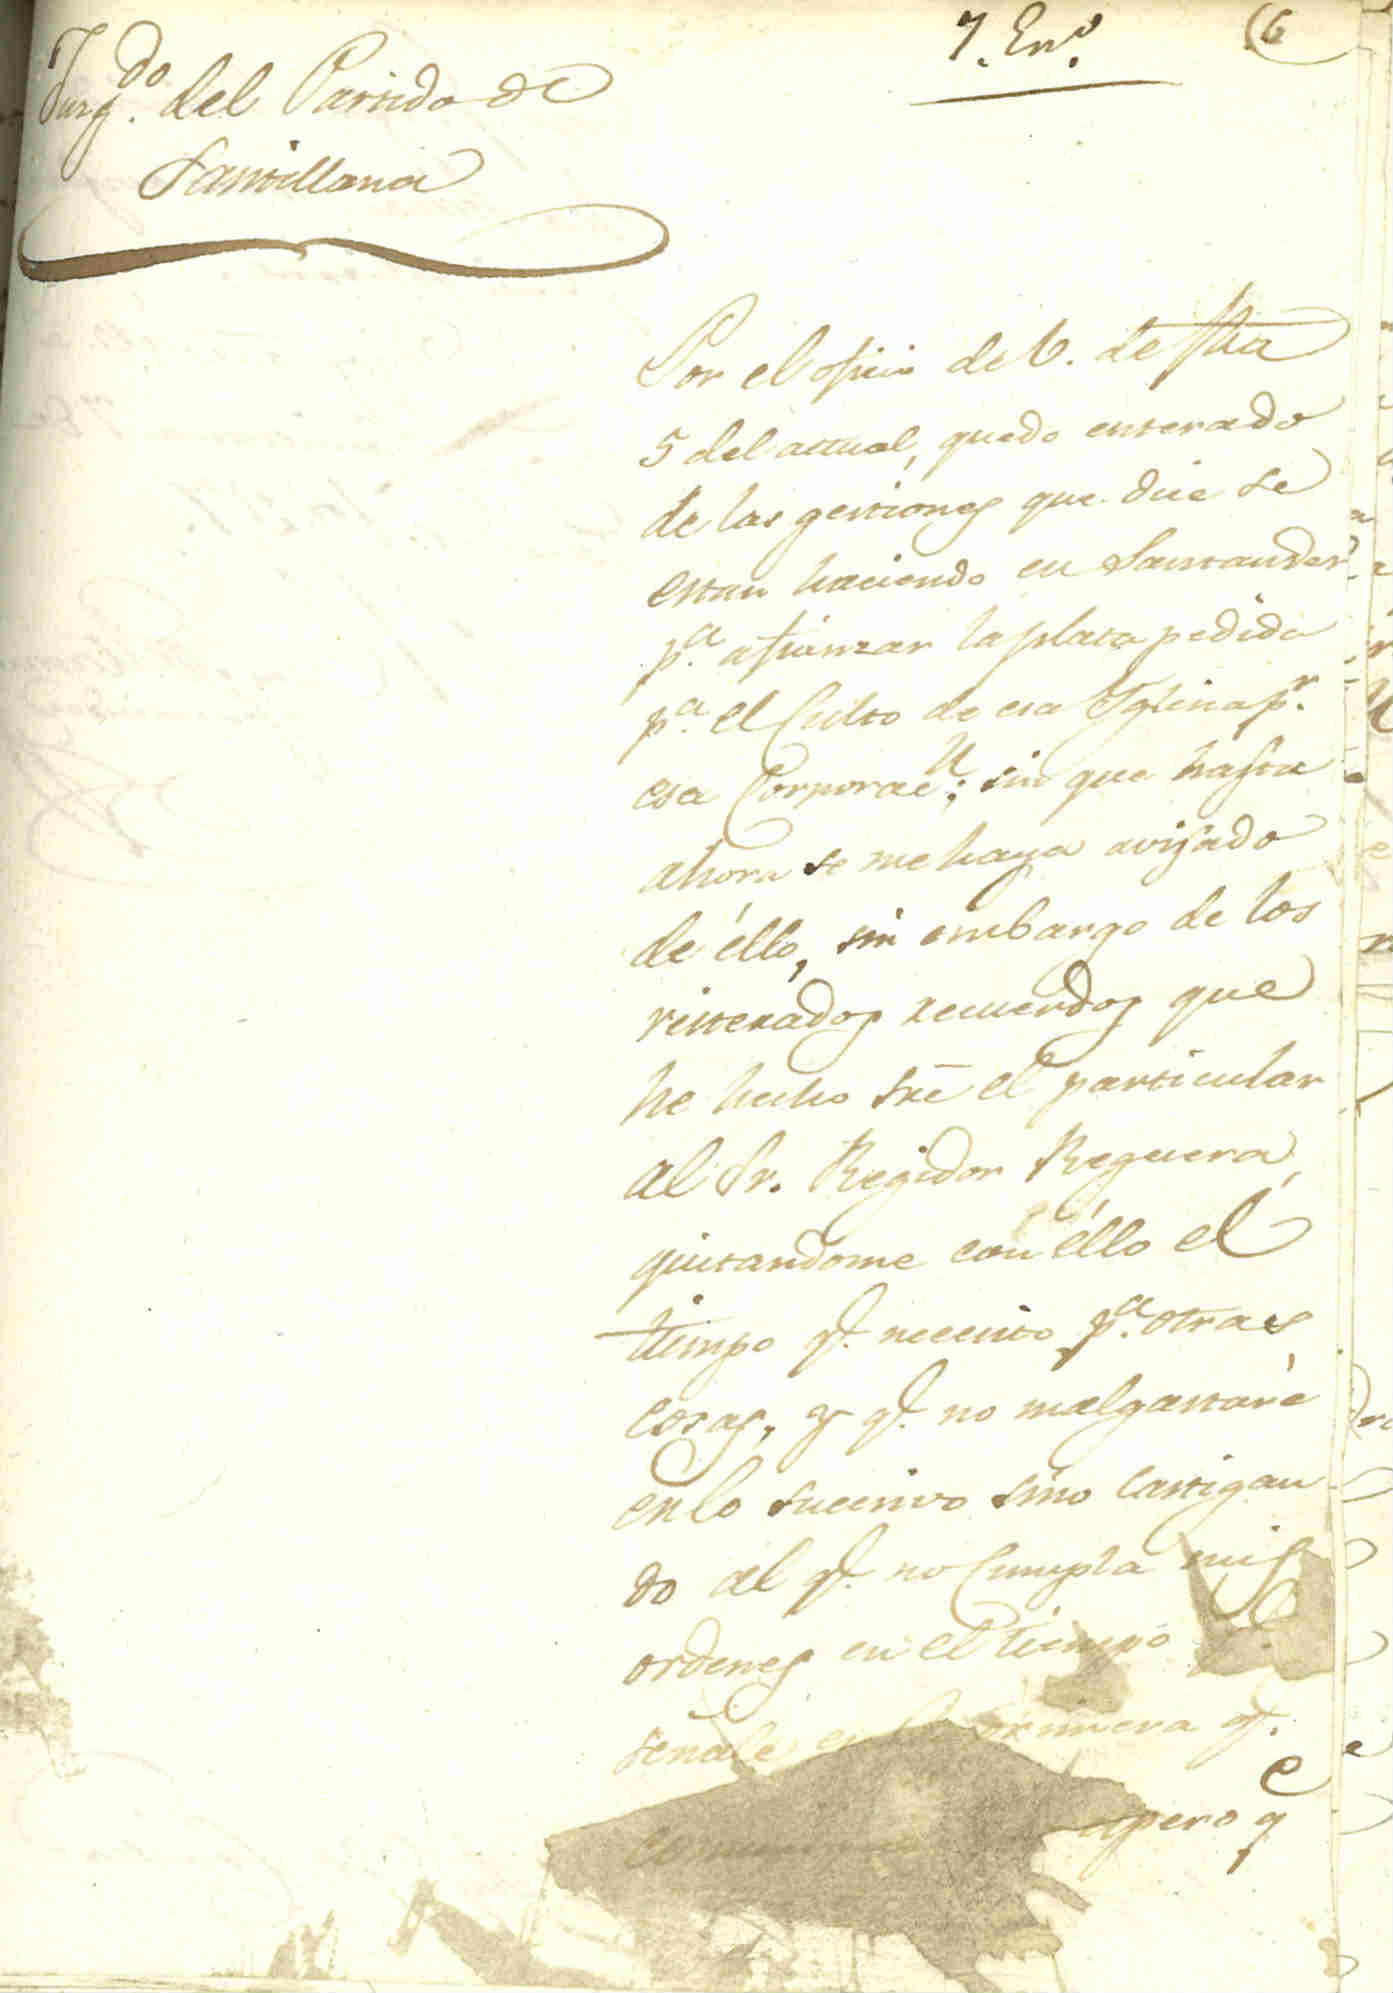 7. En.º
(6
Juzg.do del Partido de
Santillana
Por el oficio de V. de fha
5 del actual, quedo enterado
de las gestiones que dice se
estan haciendo en Santander
p.a afianzar la plata pedida
p.a el Culto de esa Yglesia p.r
esa Corporac.n; sin que hasta
ahora se me haya avisado
de éllo, sin embargo de los
reiterados recuerdos que
he hecho sre el particular
al Sr. Regidor Reguera,
quitandome con éllo el
tiempo q.e necesito p.a otras
cosas, y q.e no malgastaré
en lo succesivo sino castigan
do al q.e no cumpla mis
ordenes en el tiempo
señale; en la primera q.e
espero q.e